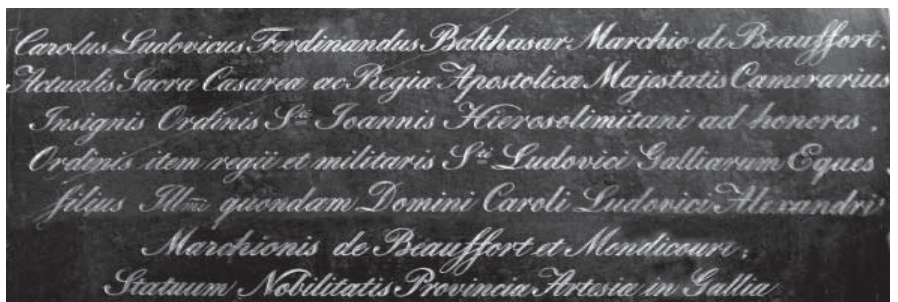 Carolus Ludovicus Ferdinandus Balthasar Marchio de Beauffort,
Actualis Sacra Cæsarea ac Regia Apostolicæ Majestatis Camerarius
Insignis Ordinis Sti Joannis Hierosolimitani ad honores,
Ordinis item regii et militaris Sti Ludovici Galliarum Eques,
filius Illmi quondam Domini Caroli Ludovici Alexandri
Marchionis de Beauffort et Mondicourt,
Statuum Nobilitatis Provincia Artesiæ in Gallia